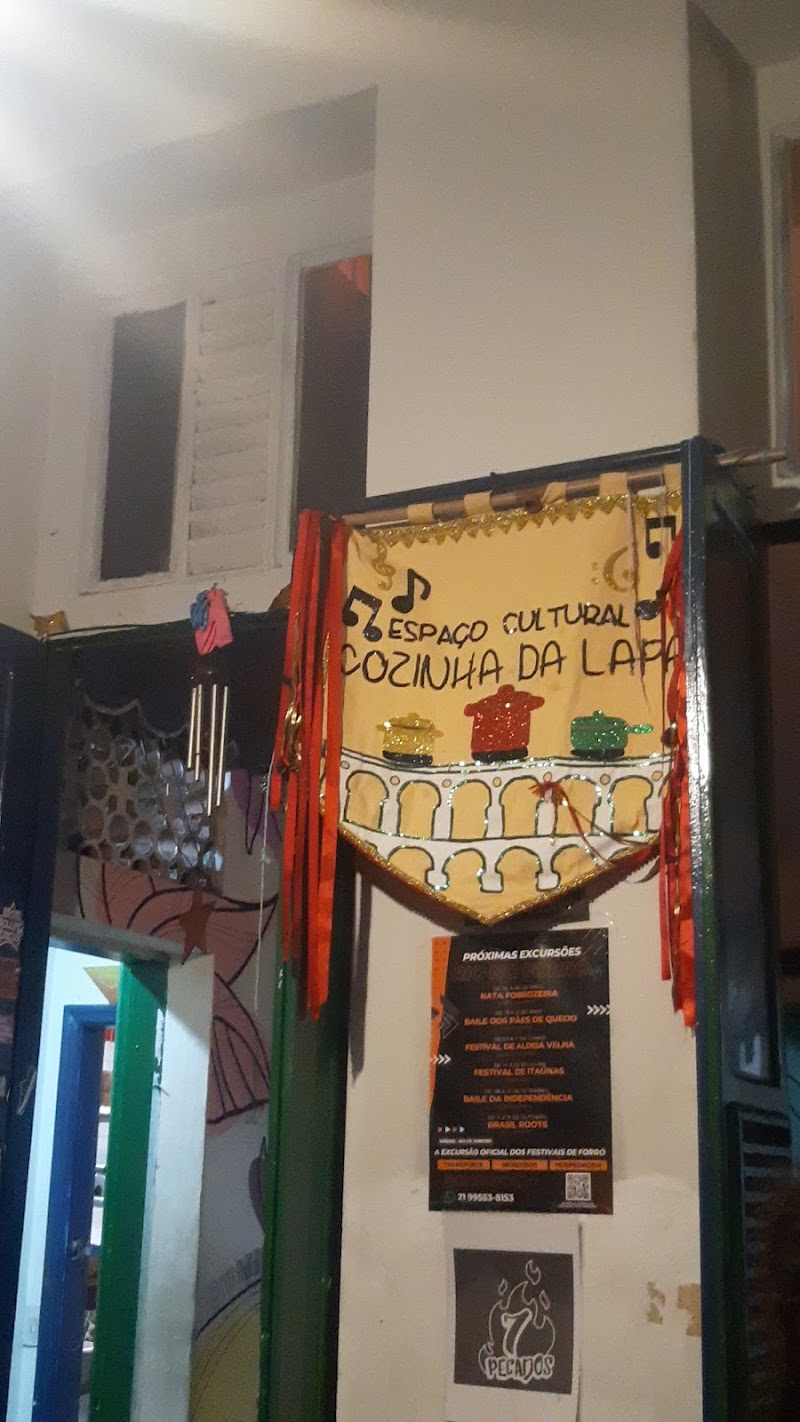 ESPAÇO CULTURAL
COZINHA DA LAPA
PRÓXIMAS EXCURSÕES
NATA FORROZEIRA
BAILE DOS PÃES DE QUEIJO
FESTIVAL DE ALDEIA VELHA
FESTIVAL DE ITAÚNAS
BAILE DA INDEPENDÊNCIA
BRASIL ROOTS
A EXCURSÃO OFICIAL DOS FESTIVAIS DE FORRÓ
TRANSPORTE INGRESSOS HOSPEDAGEM
21 99553-8153
7
PECADOS